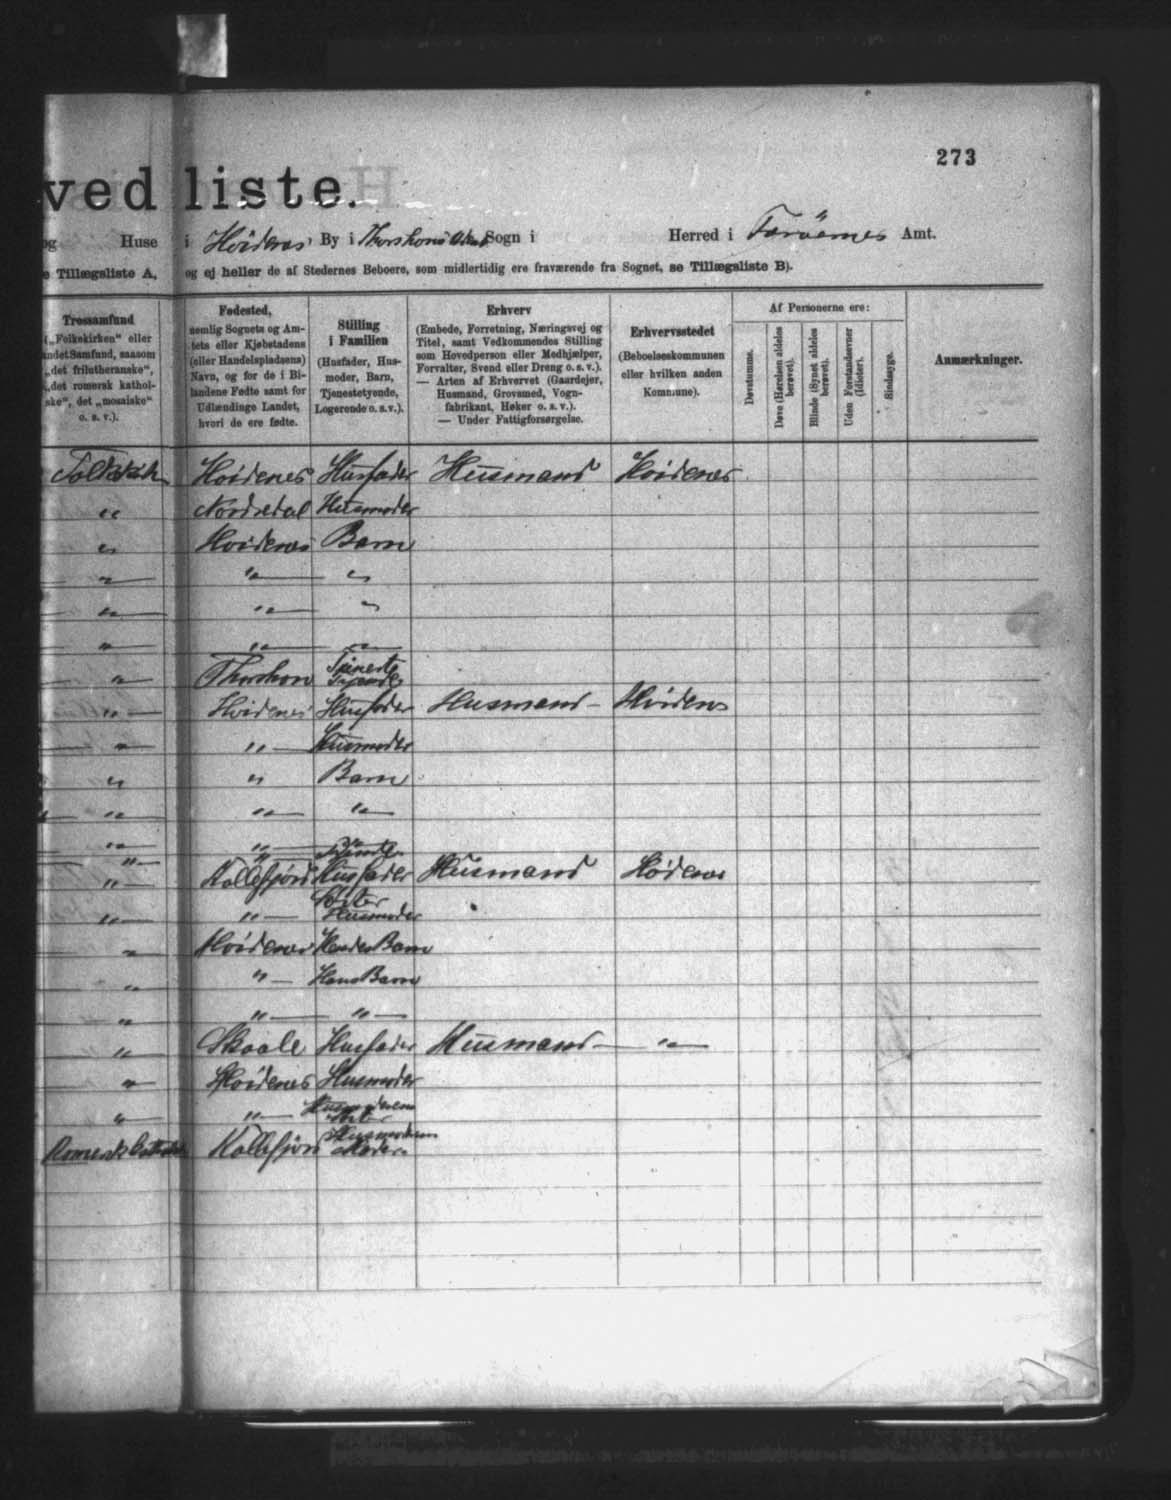 273
ved liste.
og Huse i Hvidenæs By i Thorshavns Sogn i Herred i Færøernes Amt.
e Tillægsliste A, og ej heller de af Stedernes Beboere, som midlertidig ere fraværende fra Sognet, se Tillægsliste B).
Trossamfund
(„Folkekirken“ eller
andet Samfund, saasom
„det frilutheranske“,
„det romersk katholske“, det „mosaiske“
o. s. v.).
Fødested,
nemlig Sognets og Amtets eller Kjøbstadens
(eller Handelspladsens)
Navn, og for de i Bilandene Fødte samt for
Udlændinge Landet,
hvori de ere fødte.
Stilling
i Familien
(Husfader, Husmoder, Barn,
Tjenestetyende,
Logerende o. s. v.).
Erhverv
(Embede, Forretning, Næringsvej og
Titel, samt Vedkommendes Stilling
som Hovedperson eller Medhjælper,
Forvalter, Svend eller Dreng o. s. v.).
— Arten af Erhvervet (Gaardejer,
Husmand, Grovsmed, Vognfabrikant, Høker o. s. v.).
— Under Fattigforsørgelse.
Erhvervsstedet
(Beboelseskommunen
eller hvilken anden
Kommune).
Af Personerne ere:
Døvstumme.
Døve (Hørelsen aldeles
berøvet).
Blinde (Synet aldeles
berøvet).
Uden Forstandsevner
(Idioter).
Sindssyge.
Anmærkninger.
Folkekirk Hvidenes Husfader Husmand Hvidenes
" Nordredal Husmoder
" Hvidenes Barn
" " "
" " "
" " "
" Thorshavn Tjeneste
Tyende
" Hvidenes Husfader Husmand Hvidenes
" " Husmoder
" " Barn
" " "
" "
" Kollefjord Husfader Husmand
" " Søster
Husmoder
" Hvidenes Hendes Barn
" " Hans Barn
" " "
" Skaale Husfader Husmand "
" Hvidenes Husmoder
" " Husmoderens
Søster
Romersk Katholsk Kollefjord Husmoderens
Moder